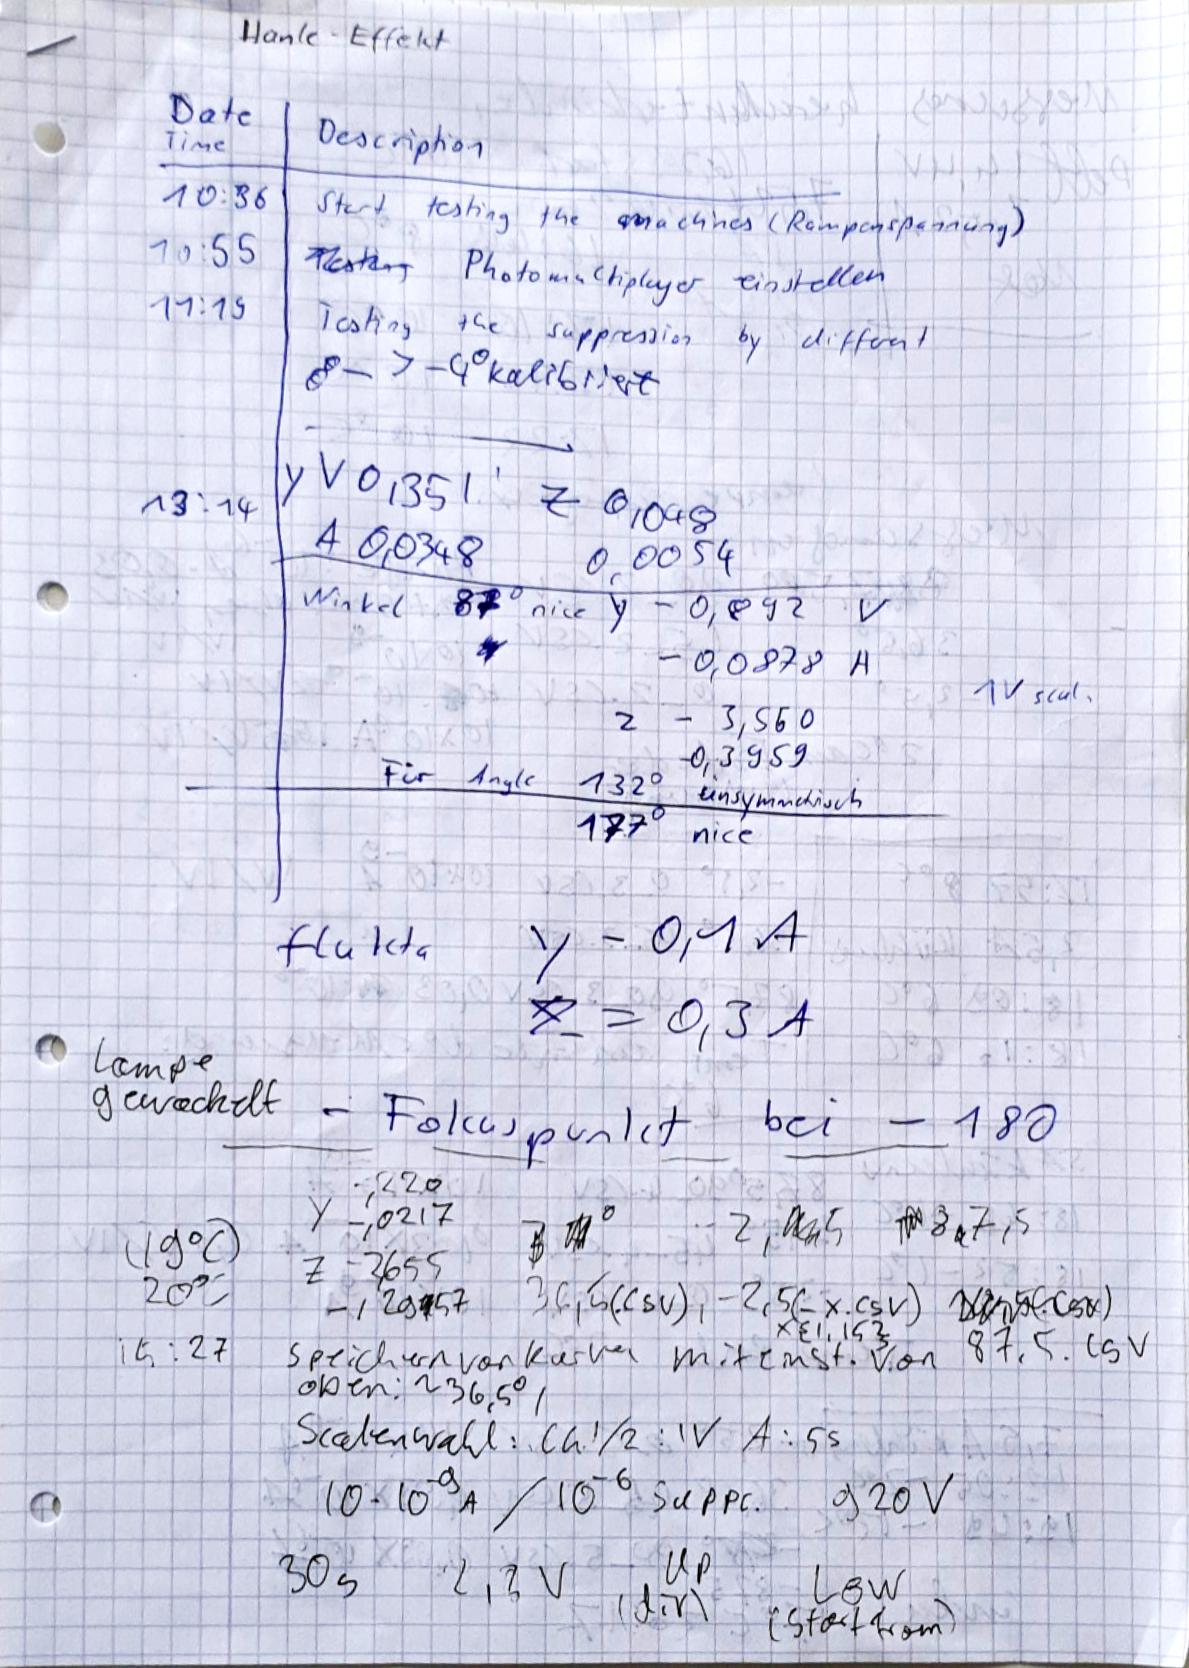 Hanle-Effekt
Date
Time
Description
10:36 Start testing the machines (Rampenspannung)
10:55 Photomultiplayer einstellen
11:19 Testing the suppression by different
-> -4° kalibriert
13:14 y V 0,1351 Z 0,048
A 0,0348 0,0054
Winkel 87° nice y - 0,892 V
- 0,0878 A
1V scal.
z - 3,560
-0,3959
Für Angle 132° unsymmetrisch
177° nice
flukta y - 0,1 A
Z = 0,3 A
Lampe
gewackelt - Fokuspunkt bei - 180
-,220
Y -,0217
(19°C) Z -2655
20°C 36,5(.csv), -2,5(-x.csv)
x∈1,152
15:27 speichern von Kurven mit einst. von 87,5.csv
oben: ~36,5°,
Scalenwahl: Ch1/2: 1V A: 5s
10·10⁻⁹A / 10⁻⁶ suppr. 920V
30s 2,3V Up Low
(dir) (start from)